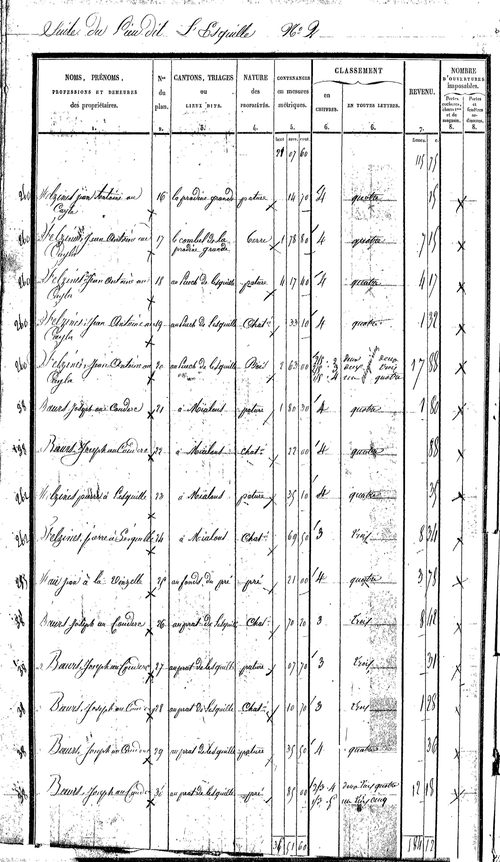 Suite du Lieu dit St Esquille No 2
NOMS, PRÉNOMS, PROFESSIONS ET DEMEURES des propriétaires. 1.
Nos du plan. 2.
CANTONS, TRIAGES ou LIEUX DITS. 3.
NATURE des PROPRIÉTÉS. 4.
CONTENANCES en mesures métriques. 5.
CLASSEMENT
en CHIFFRES. 6.
EN TOUTES LETTRES. 6.
REVENU. 7.
NOMBRE D'OUVERTURES imposables.
Portes cochères, charretères et de magasin. 8.
Portes et fenêtres ordinaires. 8.
115 75
260 Jean Antoine au Cayla 16 la pradine grande pature 14 70 4 quatre 15
260 Felzines Jean Antoine au Cayla 17 le combal de la pradine grande terre 1 78 80 4 quatre 7 15
260 Felzines Jean Antoine au Cayla 18 au Puech de Lesquille pature 4 17 40 4 quatre 4 17
260 Felzines Jean Antoine au Cayla 19 au Puech de Lesquille Chat. 33 10 4 quatre 1 32
260 Felzines Jean Antoine au Cayla 20 au Puech de Lesquille Bois 2 63 00 17 88
38 Bours Joseph au Coudere 21 à Mialous pature 1 80 30 4 quatre 1 80
Bours Joseph au Coudere 22 à Mialous chat. 22 00 4 quatre 88
262 Felzines pierre à Lesquille 23 à Mialous pature 35 10 4 quatre 35
262 Felzines pierre à Lesquille 24 à Mialous Chat. 69 50 3 trois 8 34
jean à la Vinzelle 25 au fonds du pré pré 21 00 4 quatre 3 78
38 Bours Joseph au Coudere 26 au prat de Lesquille Chat. 70 20 3 trois 8 42
38 Bours Joseph au Coudere 27 au prat de Lesquille pature 07 70 3 trois 31
38 Bours Joseph au Coudere 28 au prat de Lesquille Chat. 10 70 3 trois 1 28
38 Bours Joseph au Coudere 29 au prat de Lesquille pature 35 50 4 quatre 36
38 Bours Joseph au Coudere 30 au prat de Lesquille pré 85 00 2/3 4 1/3 5 deux tiers quatre un tiers cinq 12 18